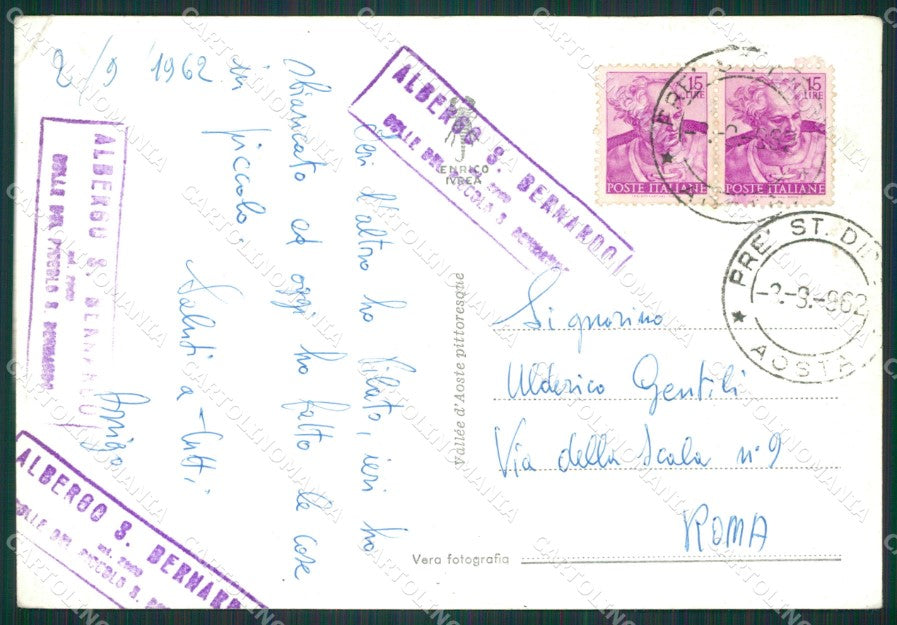 2/9 1962
Ieri l'altro ho filato, ieri ho
sbiancato et oggi ho fatto le cose
in piccolo.
Saluti a tutti
Arrigo
ALBERGO S. BERNARDO
COLLE DEL PICCOLO S. BERNARDO
ALBERGO S. BERNARDO
COLLE DEL PICCOLO S. BERNARDO
ALBERGO S. BERNARD
COLLE DEL PICCOLO S.
ENRICO
IVREA
Vallée d'Aoste pittoresque
Vera fotografia
15
LIRE
POSTE ITALIANE
15
LIRE
POSTE ITALIANE
PRE' ST. DID
-2.-9.-962
AOSTA
Signorino
Ulderico Gentili
Via della Scala n° 9
ROMA
CARTOLINOMANIA